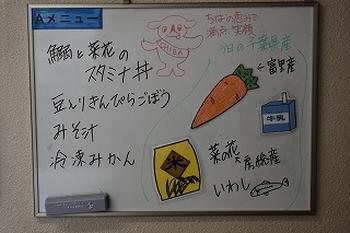 Aメニュー
鰯と菜花の
スタミナ丼
豆入りきんぴらごぼう
みそ汁
冷凍みかん
CHIBA
ちばの恵みで
満点笑顔
今日の千葉県産
富里産
牛乳
米
菜の花
房総産
いわし